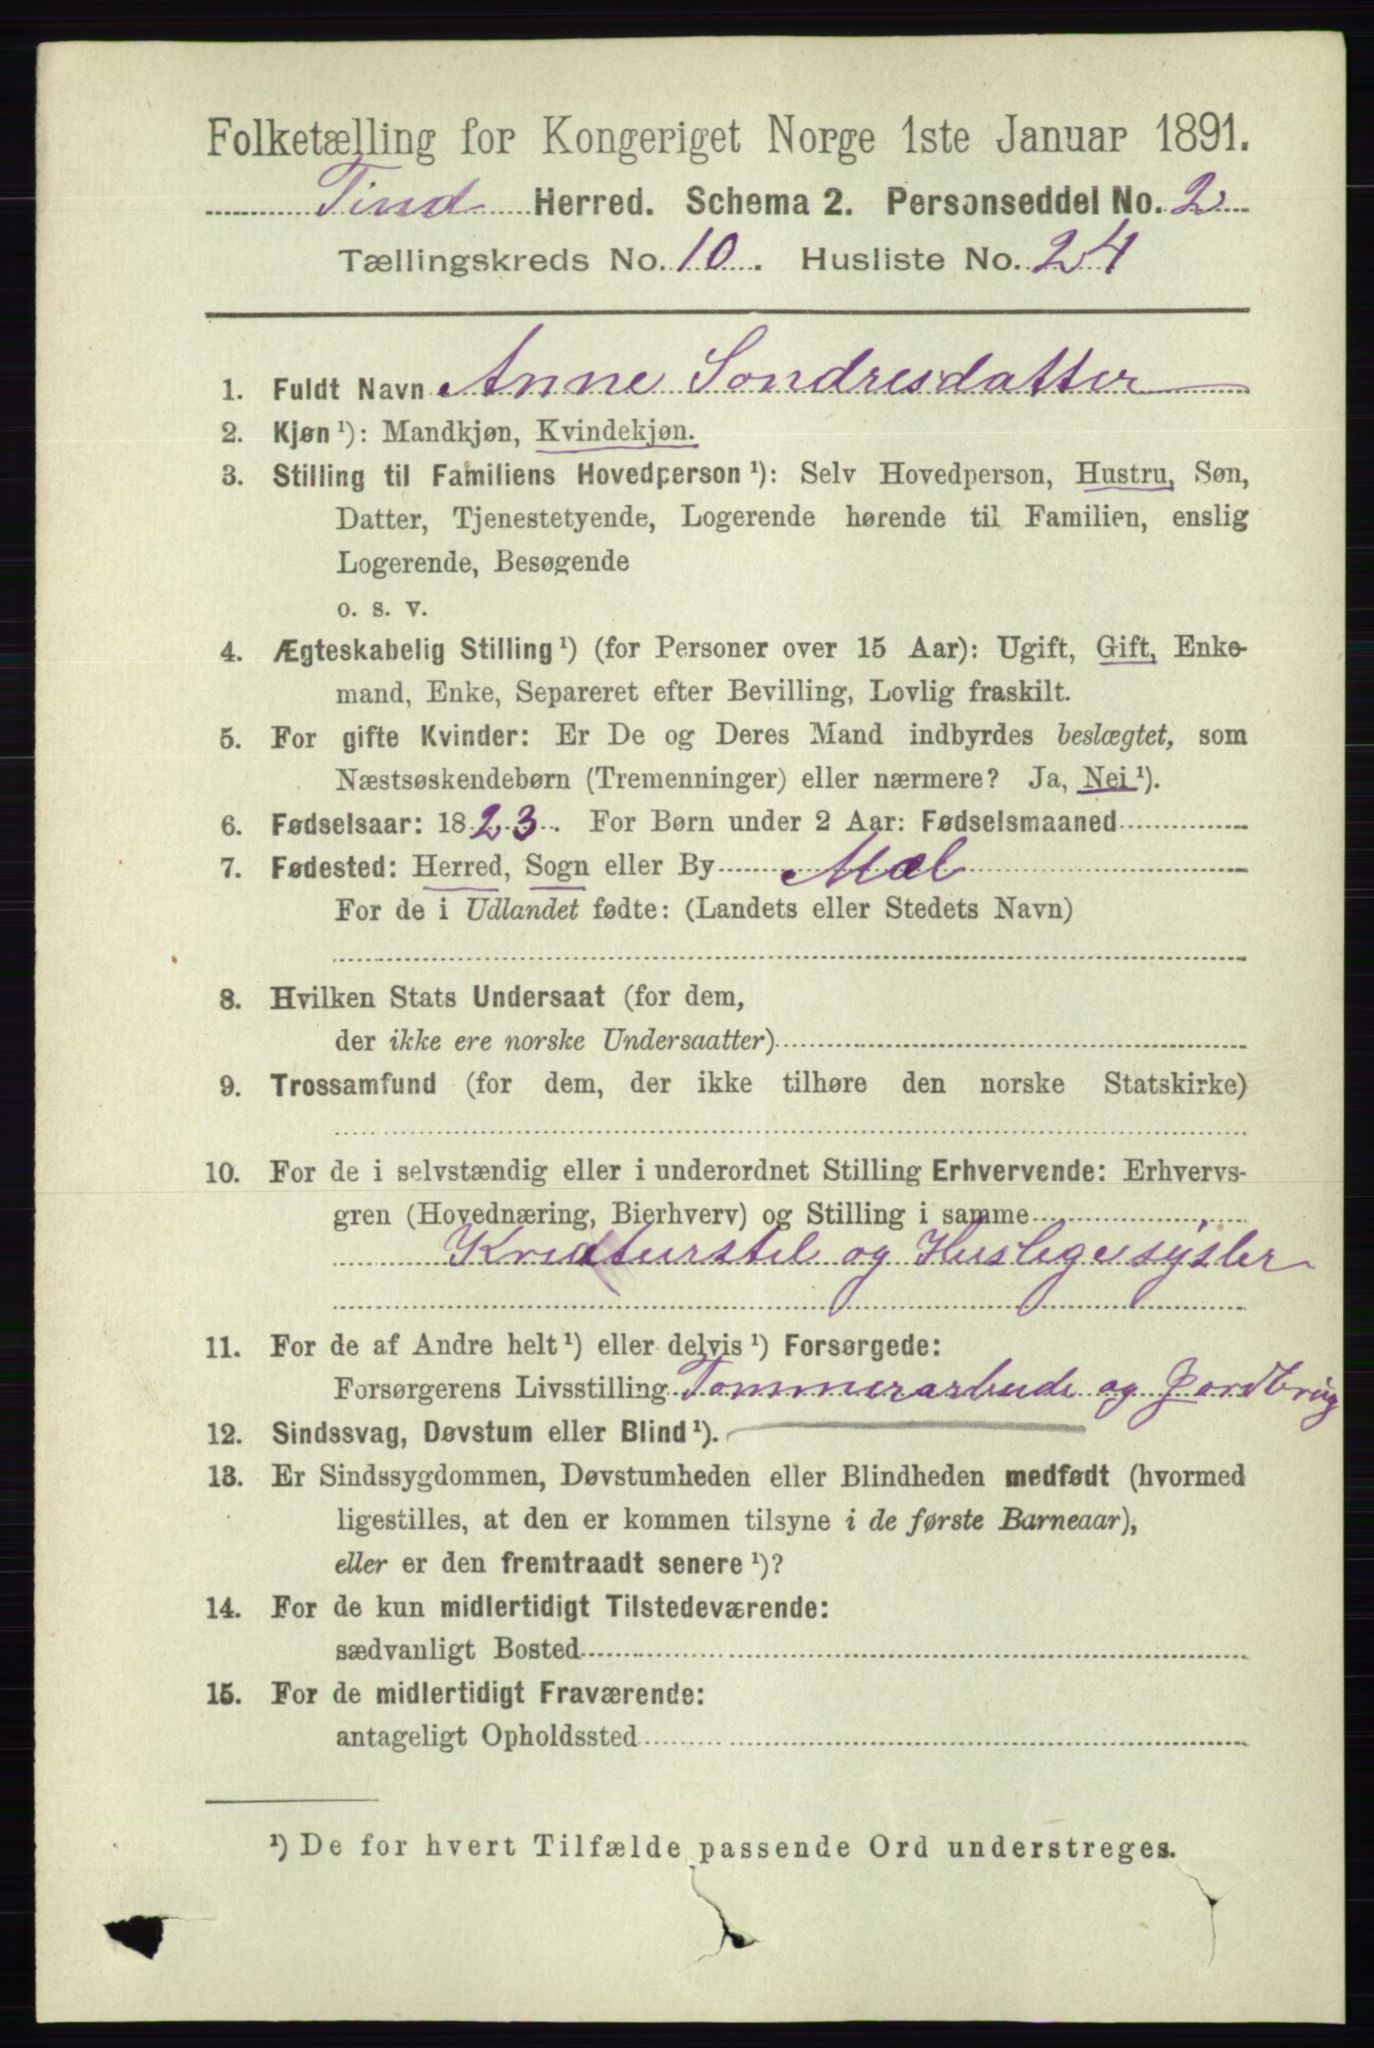 Folketælling for Kongeriget Norge 1ste Januar 1891.
Tind Herred. Schema 2. Personseddel No. 2
Tællingskreds No. 10. Husliste No. 24
1. Fuldt Navn Anne Sondresdatter
2. Kjøn ¹): Mandkjøn, Kvindekjøn.
3. Stilling til Familiens Hovedperson ¹): Selv Hovedperson, Hustru, Søn,
Datter, Tjenestetyende, Logerende hørende til Familien, enslig
Logerende, Besøgende
o. s. v.
4. Ægteskabelig Stilling ¹) (for Personer over 15 Aar): Ugift, Gift, Enke-
mand, Enke, Separeret efter Bevilling, Lovlig fraskilt.
5. For gifte Kvinder: Er De og Deres Mand indbyrdes beslægtet, som
Næstsøskendebørn (Tremenninger) eller nærmere? Ja, Nei ¹).
6. Fødselsaar: 1823. For Børn under 2 Aar: Fødselsmaaned
7. Fødested: Herred, Sogn eller By Mæl
For de i Udlandet fødte: (Landets eller Stedets Navn)
8. Hvilken Stats Undersaat (for dem,
der ikke ere norske Undersaatter)
9. Trossamfund (for dem, der ikke tilhøre den norske Statskirke)
10. For de i selvstændig eller i underordnet Stilling Erhvervende: Erhvervs-
gren (Hovednæring, Bierhverv) og Stilling i samme
Kreaturstel og Huslegesysler
11. For de af Andre helt ¹) eller delvis ¹) Forsørgede:
Forsørgerens Livsstilling Tommerarbeide og Jordbrug
12. Sindssvag, Døvstum eller Blind ¹).
13. Er Sindssygdommen, Døvstumheden eller Blindheden medfødt (hvormed
ligestilles, at den er kommen tilsyne i de første Barneaar),
eller er den fremtraadt senere ¹)?
14. For de kun midlertidigt Tilstedeværende:
sædvanligt Bosted
15. For de midlertidigt Fraværende:
antageligt Opholdssted
¹) De for hvert Tilfælde passende Ord understreges.